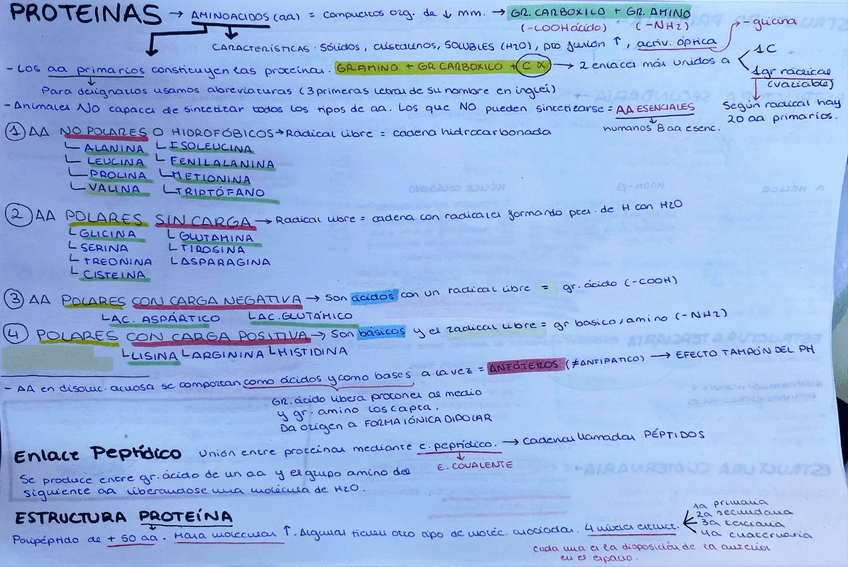 PROTEINAS → AMINOACIDOS (aa) = compuestos org. de ↓ mm. → GR. CARBOXILO + GR. AMINO
(-COOH ácido) (-NH2)
CARACTERÍSTICAS: Sólidos, cristalinos, SOLUBLES (H2O), pto fusión ↑, activ. óptica - glicina
- Los aa primarios constituyen las proteínas. GR AMINO + GR CARBOXILO + C α → 2 enlaces más unidos a
1C
1 gr radical (variable)
Para designarlos usamos abreviaturas (3 primeras letras de su nombre en inglés)
- Animales NO capaces de sintetizar todos los tipos de aa. Los que NO pueden sintetizarse = AA ESENCIALES
humanos 8 aa esenc.
Según radical hay
20 aa primarios.
① AA NO POLARES O HIDROFÓBICOS → Radical libre = cadena hidrocarbonada
ALANINA ISOLEUCINA
LEUCINA FENILALANINA
PROLINA METIONINA
VALINA TRIPTÓFANO
② AA POLARES SIN CARGA → Radical libre = cadena con radicales formando ptes. de H con H2O
GLICINA GLUTAMINA
SERINA TIROSINA
TREONINA ASPARAGINA
CISTEINA
③ AA POLARES CON CARGA NEGATIVA → Son ácidos con un radical libre = gr. ácido (-COOH)
AC. ASPÁRTICO AC. GLUTÁMICO
④ POLARES CON CARGA POSITIVA → Son básicos y el radical libre = gr basico, amino (-NH2)
LISINA ARGININA HISTIDINA
- AA en disoluc. acuosa se comportan como ácidos y como bases a la vez = ANFÓTEROS (≠ANFIPATICO) → EFECTO TAMPÓN DEL PH
GR. ácido libera protones al medio
y gr. amino los capta.
Da origen a FORMA IÓNICA DIPOLAR
Enlace Peptídico Unión entre proteinas mediante e. peptídico. → cadenas llamadas PÉPTIDOS
E. COVALENTE
Se produce entre gr. ácido de un aa y el grupo amino del
siguiente aa liberandose una molécula de H2O.
ESTRUCTURA PROTEÍNA
Polipéptido de + 50 aa. Masa molecular ↑. Algunas tienen otro tipo de moléc. asociadas. 4 niveles estruct.
1a primaria
2a secundaria
3a terciaria
4a cuaternaria
Cada una es la disposición de la anterior
en el espacio.